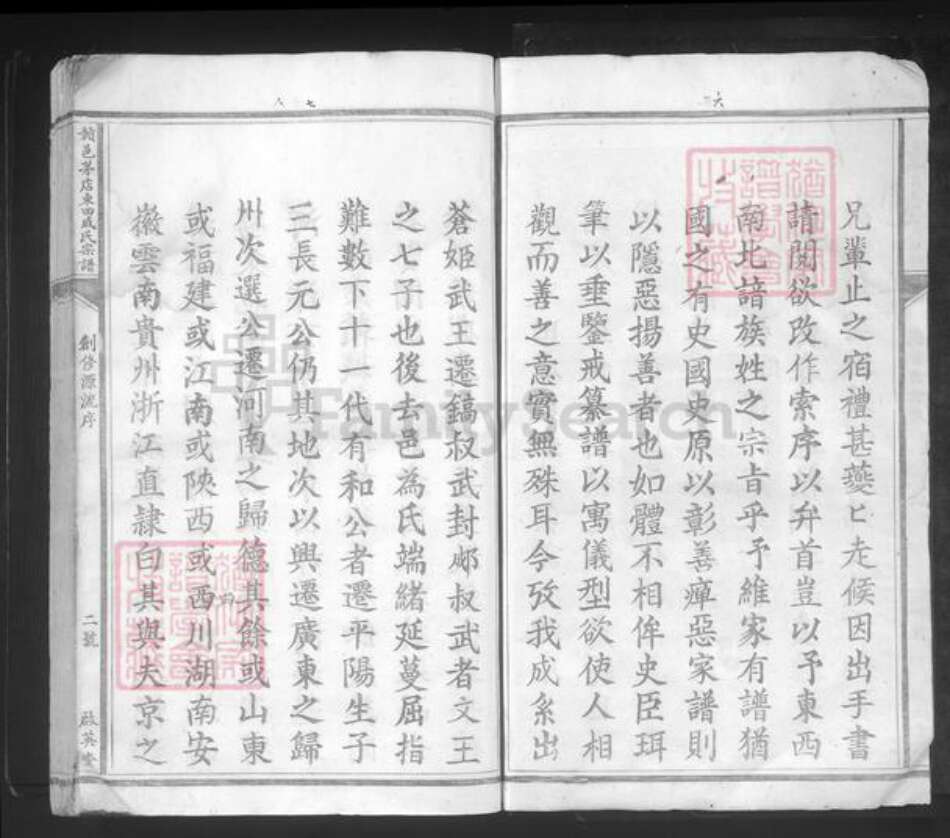 六
兄輩止之宿禮甚虔匕走候因出手書
請閱欲改作索序以弁首豈以予東西
南北諳族姓之宗旨乎予維家有譜猶
國之有史國史原以彰善癉惡家譜則
以隱惡揚善者也如體不相侔史臣珥
筆以垂鑒戒纂譜以寓儀型欲使人相
觀而善之意實無殊耳今攷我成系出
七
八
蒼姬武王遷鎬叔武封郕叔武者文王
之七子也後去邑為氏端緒延蔓屈指
難數下十一代有和公者遷平陽生子
三長元公仍其地次以興遷廣東之歸
州次選公遷河南之歸德其餘或山東
或福建或江南或陝西或西川湖南安
徽雲南貴州浙江直隸白其與夫京之
邑茅店東田成氏宗譜
創修源流序
二號
啟英堂
FamilySearch